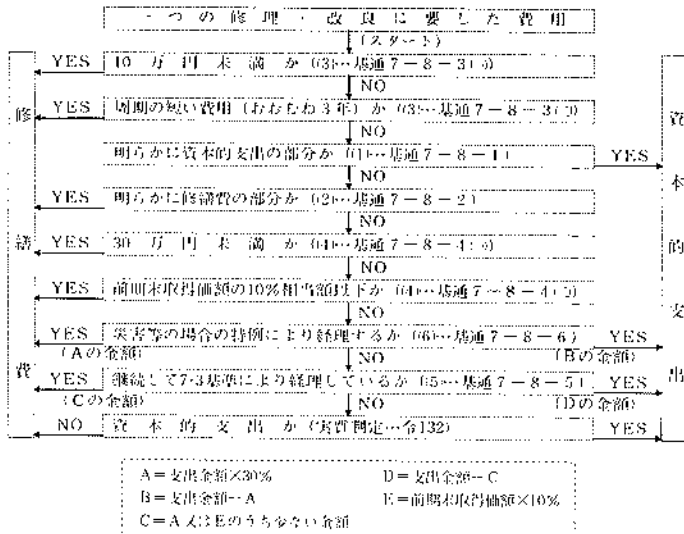 一つの修理・改良に要した費用
(スタート)
YES 10万円未満か((3)…基通7-8-3(1))
NO
YES 周期の短い費用(おおむね3年)か((3)…基通7-8-3(2))
NO
明らかに資本的支出の部分か((1)…基通7-8-1) YES
NO
YES 明らかに修繕費の部分か((2)…基通7-8-2)
NO
YES 30万円未満か((4)…基通7-8-4(1))
NO
YES 前期末取得価額の10%相当額以下か((4)…基通7-8-4(2))
NO
YES 災害等の場合の特例により経理するか((6)…基通7-8-6) YES
(Aの金額) NO (Bの金額)
YES 継続して7:3基準により経理しているか((5)…基通7-8-5) YES
(Cの金額) NO (Dの金額)
NO 資本的支出か(実質判定…令132) YES
修繕費
資本的支出
A=支出金額×30%
B=支出金額-A
C=A又はEのうち少ない金額
D=支出金額-C
E=前期末取得価額×10%